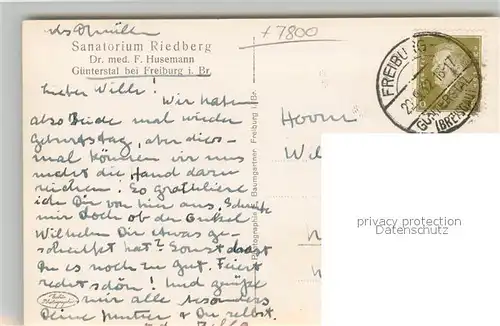 +7800
Sanatorium Riedberg
Dr. med. F. Husemann
Günterstal bei Freiburg i. Br.
Lieber Willi!
Wir haben
also Beide mal wieder
Geburtstag, aber dies-
mal können wir uns
nicht die Hand darauf
reichen! So gratuliere
ich Dir von hier aus. Schreibe
mir doch ob der Onkel
Wilhelm Dir etwas ge-
schenkt hat? Sonst hast
Du es noch zu gut. Feiert
recht schön! Und grüße
mir alle besonders
Deine Mutter & Du selbst.
Herrn
Photographie Baumgartner, Freiburg i. Br.
FREIBURG-
GÜNTERSTAL
(BREISGAU)
privacy protection
Datenschutz